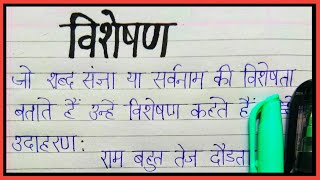 विशेषण
जो शब्द संज्ञा या सर्वनाम की विशेषता
बताते हैं उन्हें विशेषण कहते हैं
उदाहरण:
राम बहुत तेज दौड़ता